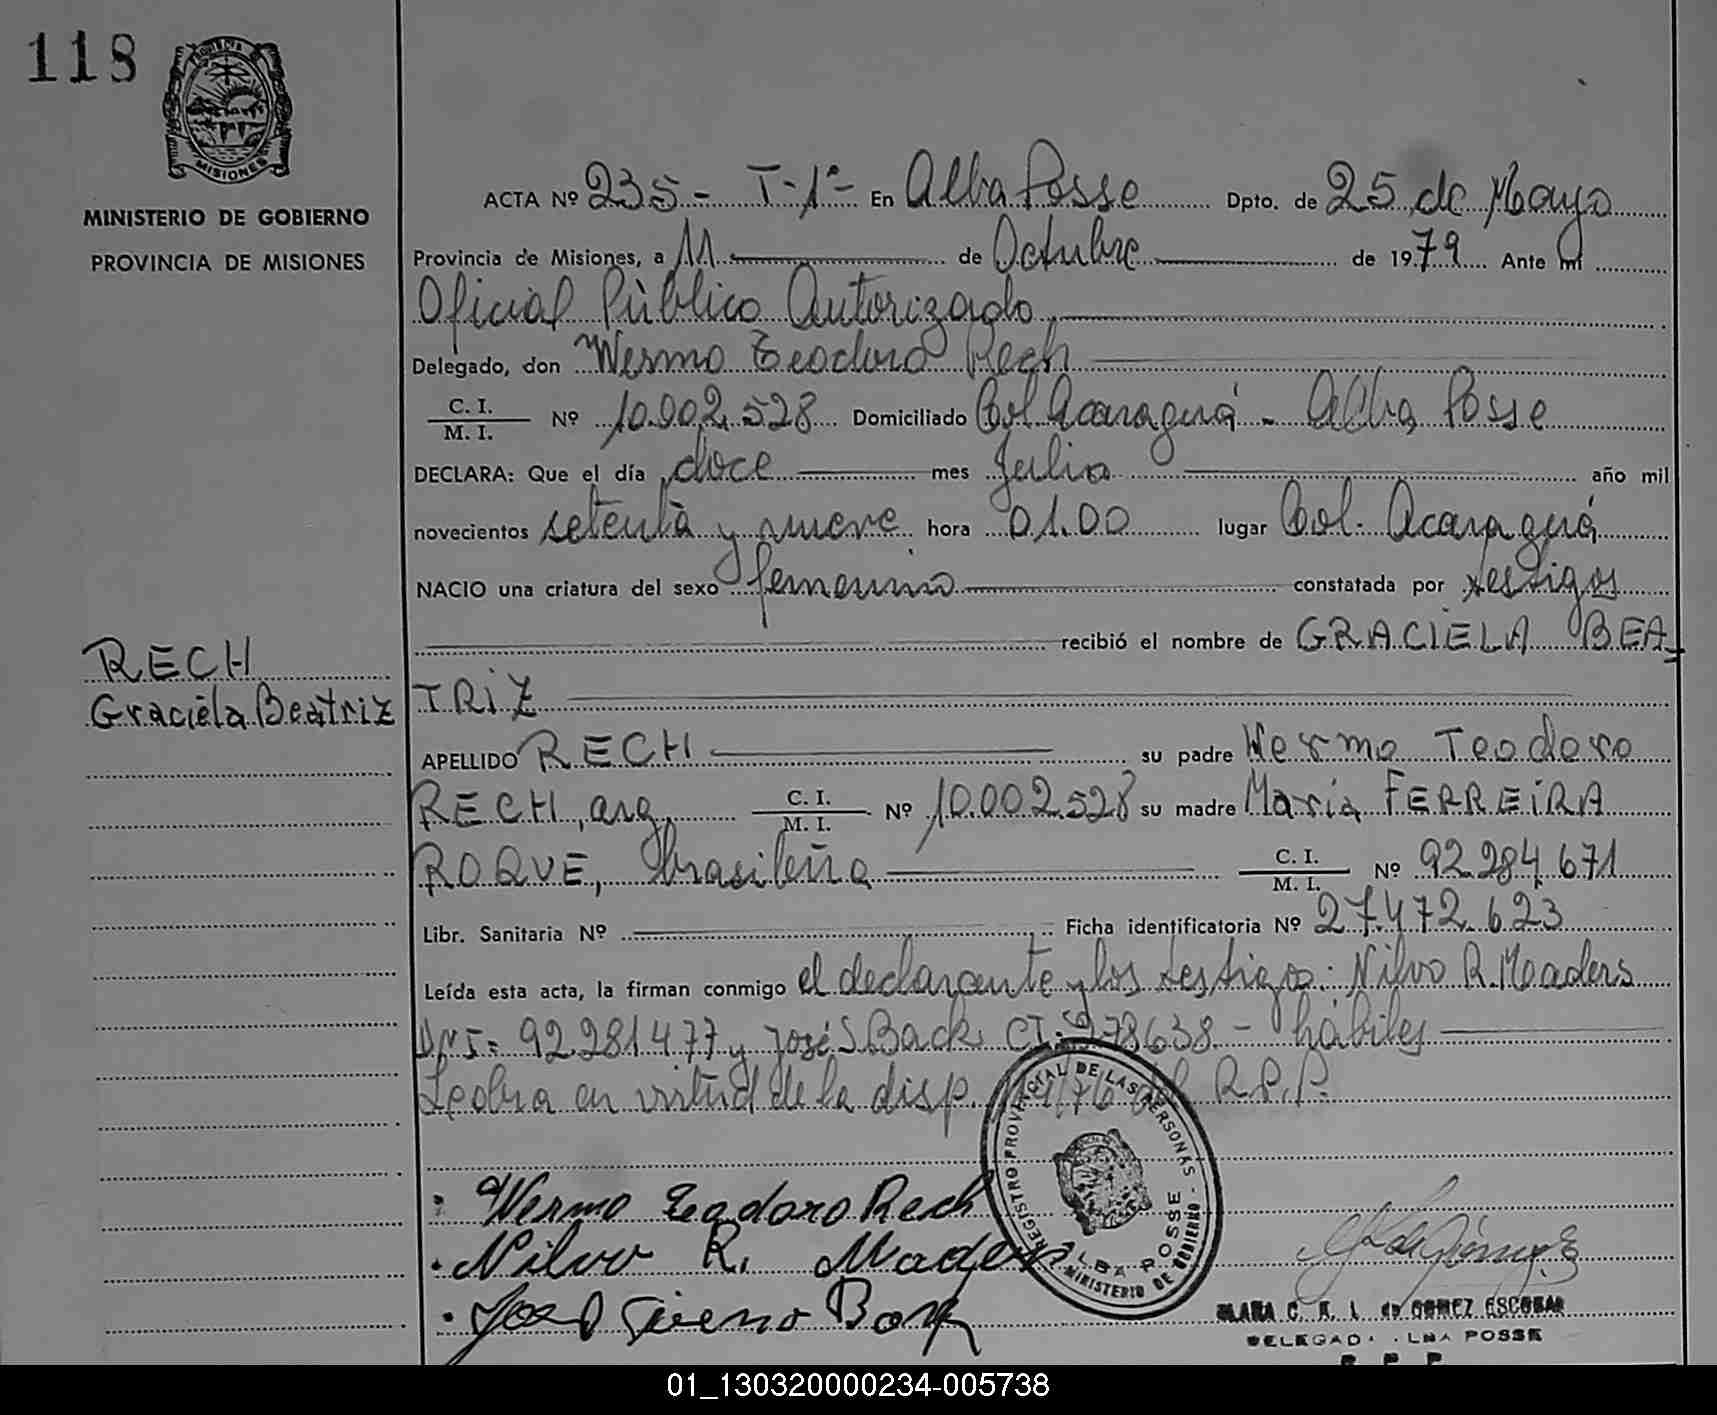 118
PROVINCIA DE
MISIONES
MINISTERIO DE GOBIERNO
PROVINCIA DE MISIONES
RECH
Graciela Beatriz
ACTA Nº 235 - T-1º - En Alba Posse Dpto. de 25 de Mayo
Provincia de Misiones, a 11 de Octubre de 1979 Ante mí
Oficial Público Autorizado
Delegado, don Wermo Teodoro Rech
C. I.
M. I. Nº 10.002.528 Domiciliado Col. Acaraguá - Alba Posse
DECLARA: Que el día doce mes Julio año mil
novecientos setenta y nueve hora 01.00 lugar Col. Acaraguá
NACIO una criatura del sexo femenino constatada por testigos
recibió el nombre de GRACIELA BEA
TRIZ
APELLIDO RECH su padre Wermo Teodoro
RECH, arg. C. I. M. I. Nº 10.002.528 su madre María FERREIRA
ROQUE, brasileña C. I. M. I. Nº 92.284.671
Libr. Sanitaria Nº Ficha identificatoria Nº 27.472.623
Leída esta acta, la firman conmigo el declarante y los testigos: Nilvo R. Maders
DNI= 92.281477 y José S. Back CI: 278638 - hábiles
Labra en virtud de la disp. /76 R.P.P.
Wermo Teodoro Rech
Nilvo R. Maders
José Sireno Back
REGISTRO PROVINCIAL DE LAS PERSONAS
ALBA POSSE
MINISTERIO DE GOBIERNO
CLARA C. R. L. de GOMEZ ESCOBAR
DELEGADA ALBA POSSE
01_130320000234-005738